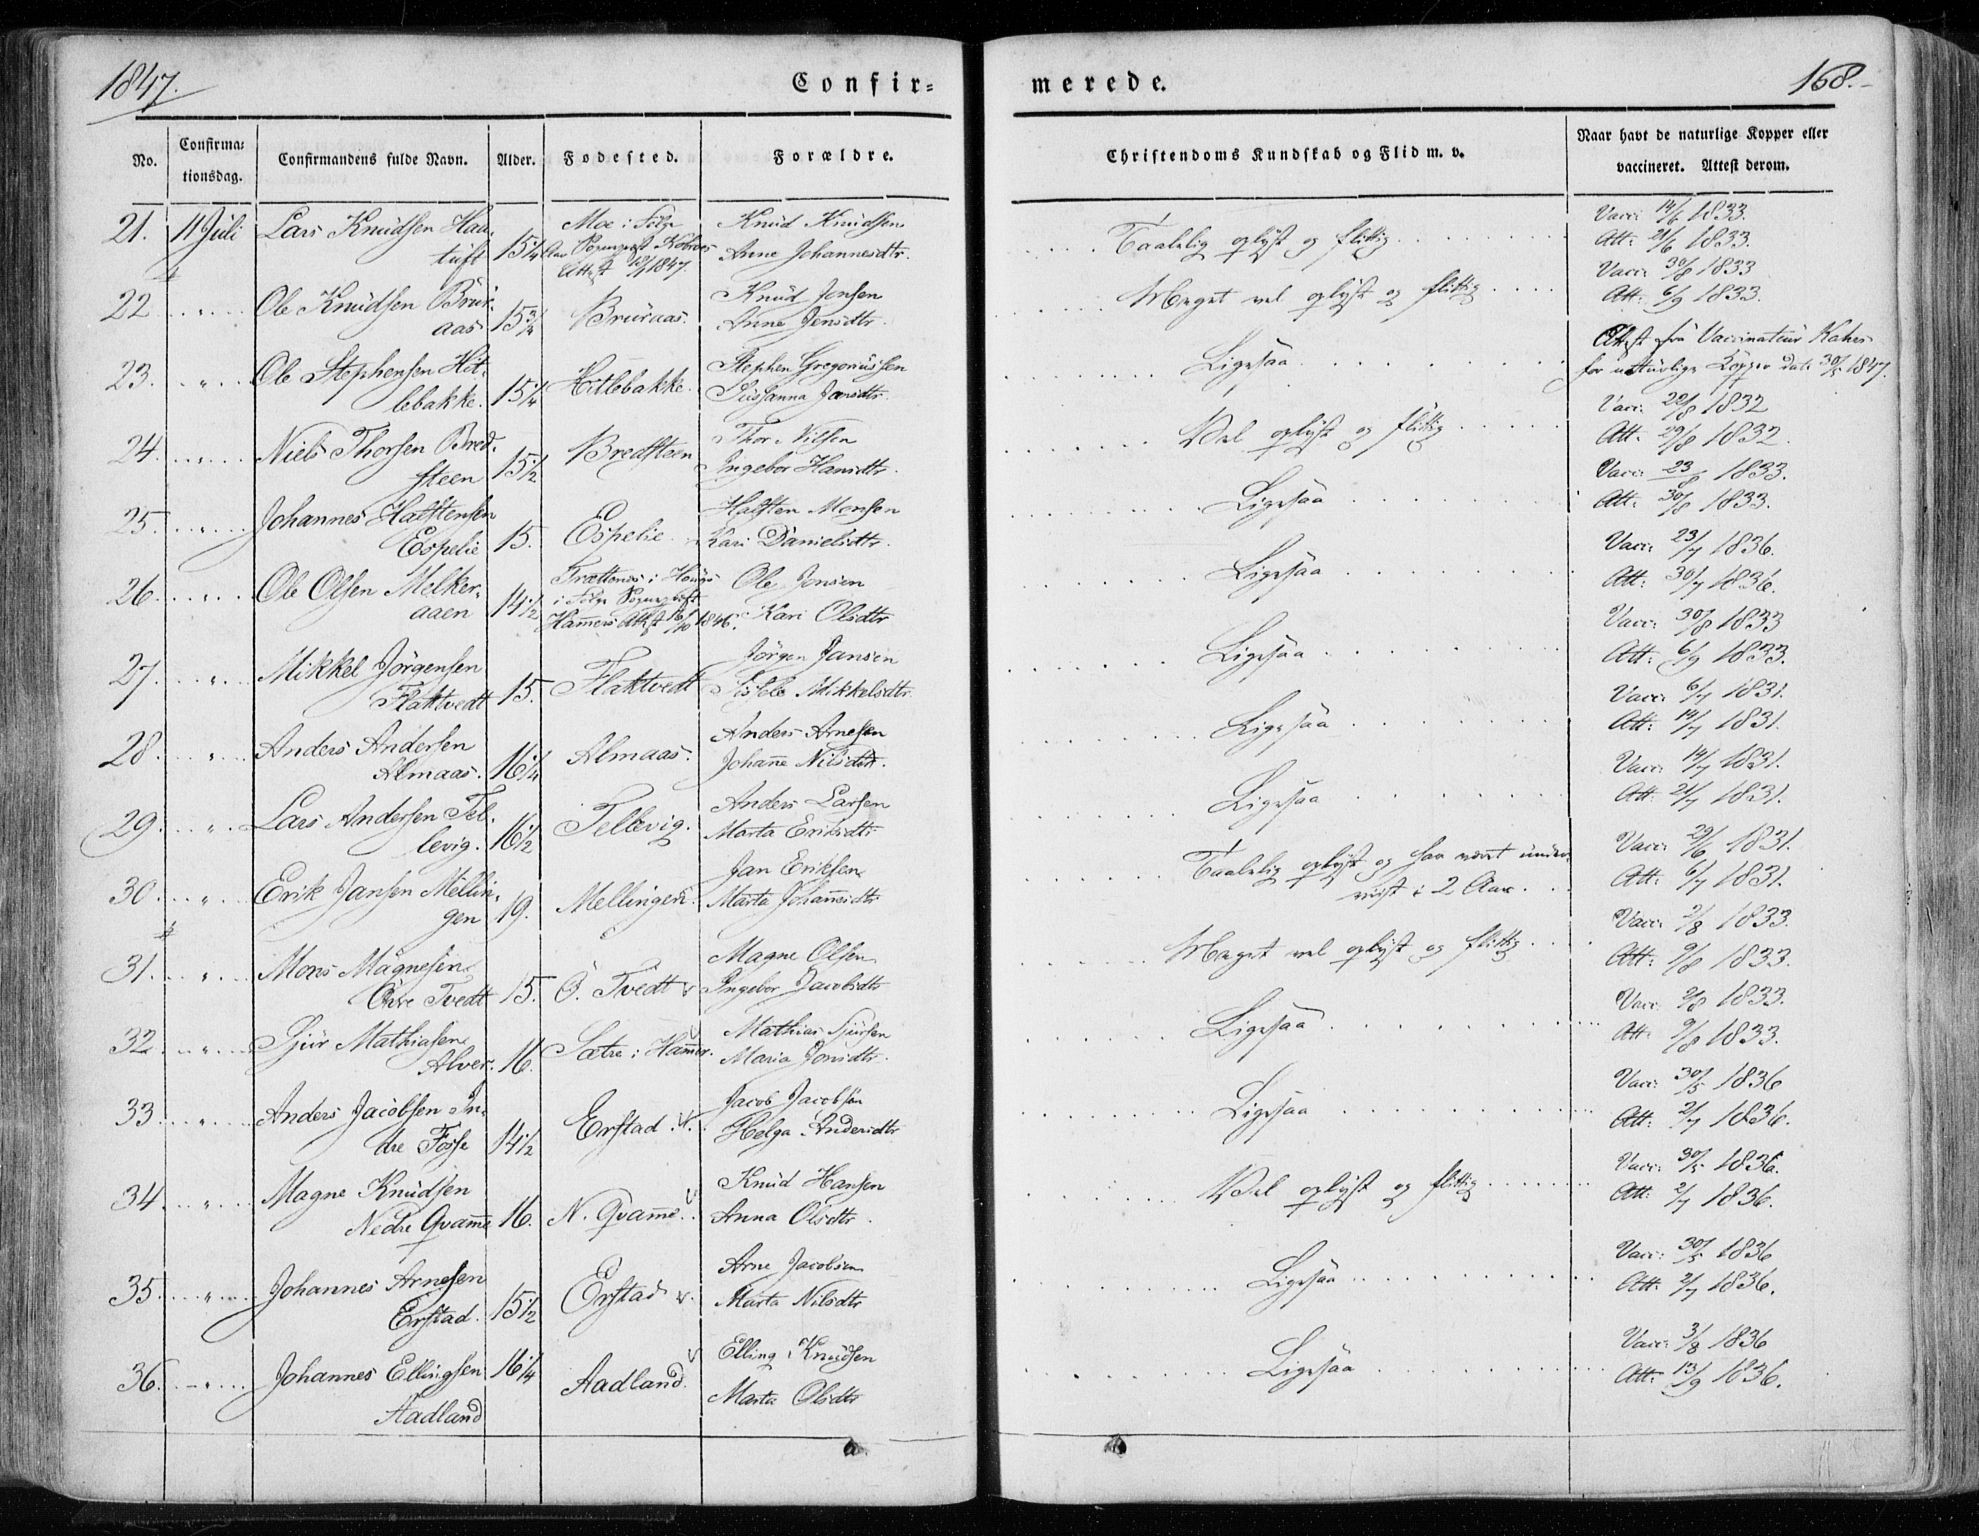 1847.
Confir-
merede.
168.
No.
Confirma-
tionsdag.
Confirmandens fulde Navn.
Alder.
Fødested.
Forældre.
Christendoms Kundskab og Flid m. v.
Naar havt de naturlige Kopper eller
vaccineret. Attest derom.
21. 11 Juli Lars Knudsen Haa- 15 1/4 Moe i Følge Knud Knudsen Taalelig oplyst og flittig Vacc: 14/6 1833.
tuft Attest 1847. Anne Johannesdtr. Att: 21/6 1833.
22 " Ole Knudsen Brur- 15 3/4 Bruraas. Knud Jonsen Meget vel oplyst og flittig Vacc: 30/8 1833
aas Anne Jensdtr. Att: 6/9 1833.
23. " Ole Stephensen Hit- 15 1/4 Hitlebakke. Stephen Gregoriussen Ligesaa Attest fra Vaccinateur
lebakke. Susanna Jansdtr. for naturlige Kopper dat: 30/5 1847.
24. " Niels Thorsen Bred- 15 1/2 Bredsteen Thor Nilsen Vel oplyst og flittig Vacc: 22/8 1832
steen Ingebor Hansdtr. Att: 29/8 1832.
25. " Johannes Halstensen 15. Espelie Halsten Monsen Ligesaa Vacc: 23/8 1833.
Espelie Kari Danielsdtr. Att: 30/8 1833.
26. " Ole Olsen Melker- 14 1/2 i Følge Ole Jonsen Ligesaa Vacc: 23/7 1836.
aaen Hamers Attest 16/10 1846. Kari Olsdtr Att: 30/7 1836.
27. " Mikkel Jörgensen 15. Flaktvedt Jörgen Jansen Ligesaa Vacc: 30/8 1833
Flaktvedt Sissele Mikkelsdtr. Att: 6/9 1833.
28. " Anders Andersen 16 1/4 Almaas. Anders Arnesen Ligesaa Vacc: 6/7 1831.
Almaas. Johanne Nilsdtr. Att: 14/7 1831.
29. " Lars Andersen Tel- 16 1/2 Tellevig. Anders Larsen Ligesaa Vacc: 14/7 1831.
levig. Marta Eriksdtr. Att: 21/7 1831.
30. " Erik Jansen Mellin- 19. Mellingen. Jan Eriksen Taalelig oplyst og har været under- Vacc: 29/6 1831.
gen Marta Johannesdtr viist i 2 Aar. Att: 6/7 1831.
31. " Mons Magnesen 15. Ö. Tvedt Magne Olsen Meget vel oplyst og flittig Vacc: 2/8 1833.
Övre Tvedt Ingebor Jacobsdtr Att: 9/8 1833.
32. " Sjur Mathiasen 16. Sætre i Hamer. Mathias Sjursen Ligesaa Vacc: 2/8 1833.
Alver. Maria Jonsdtr. Att: 9/8 1833.
33. " Anders Jacobsen In- 14 1/2 Erstad. Jacob Jacobsen Ligesaa Vacc: 30/5 1836
dre Fosse Helga Andersdtr Att: 2/7 1836.
34. " Magne Knudsen 16. N. Qvamme Knud Hansen Vel oplyst og flittig Vacc: 30/5 1836.
Nedre Qvamme Anna Olsdtr. Att: 2/7 1836.
35. " Johannes Arnesen 15 1/2 Erstad Arne Jacobsen Ligesaa Vacc: 30/5 1836
Erstad. Marta Nilsdtr Att: 2/7 1836.
36. " Johannes Ellingsen 16 1/4 Aadland. Elling Knudsen Ligesaa Vacc: 3/8 1836
Aadland Marta Olsdtr Att: 13/9 1836.